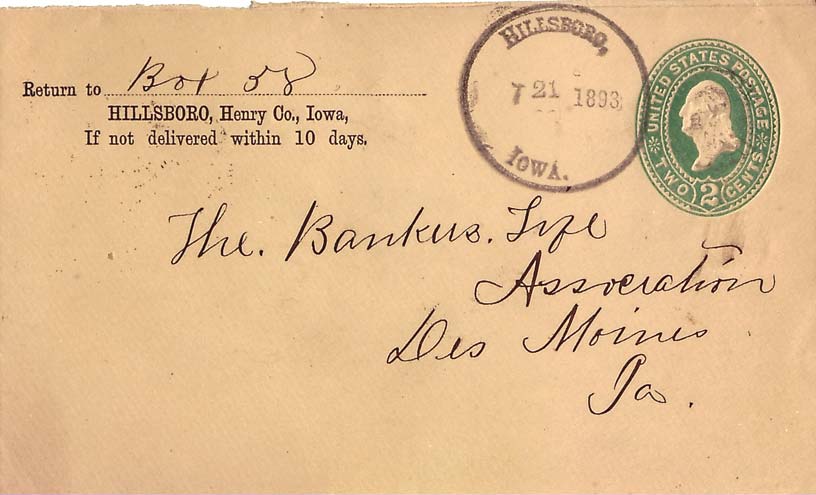 Return to Box 58
HILLSBORO, Henry Co., Iowa,
If not delivered within 10 days.
HILLSBORO,
21 1893
IOWA.
UNITED STATES POSTAGE
TWO 2 CENTS
The. Bankers. Life
Association
Des Moines
Ia.